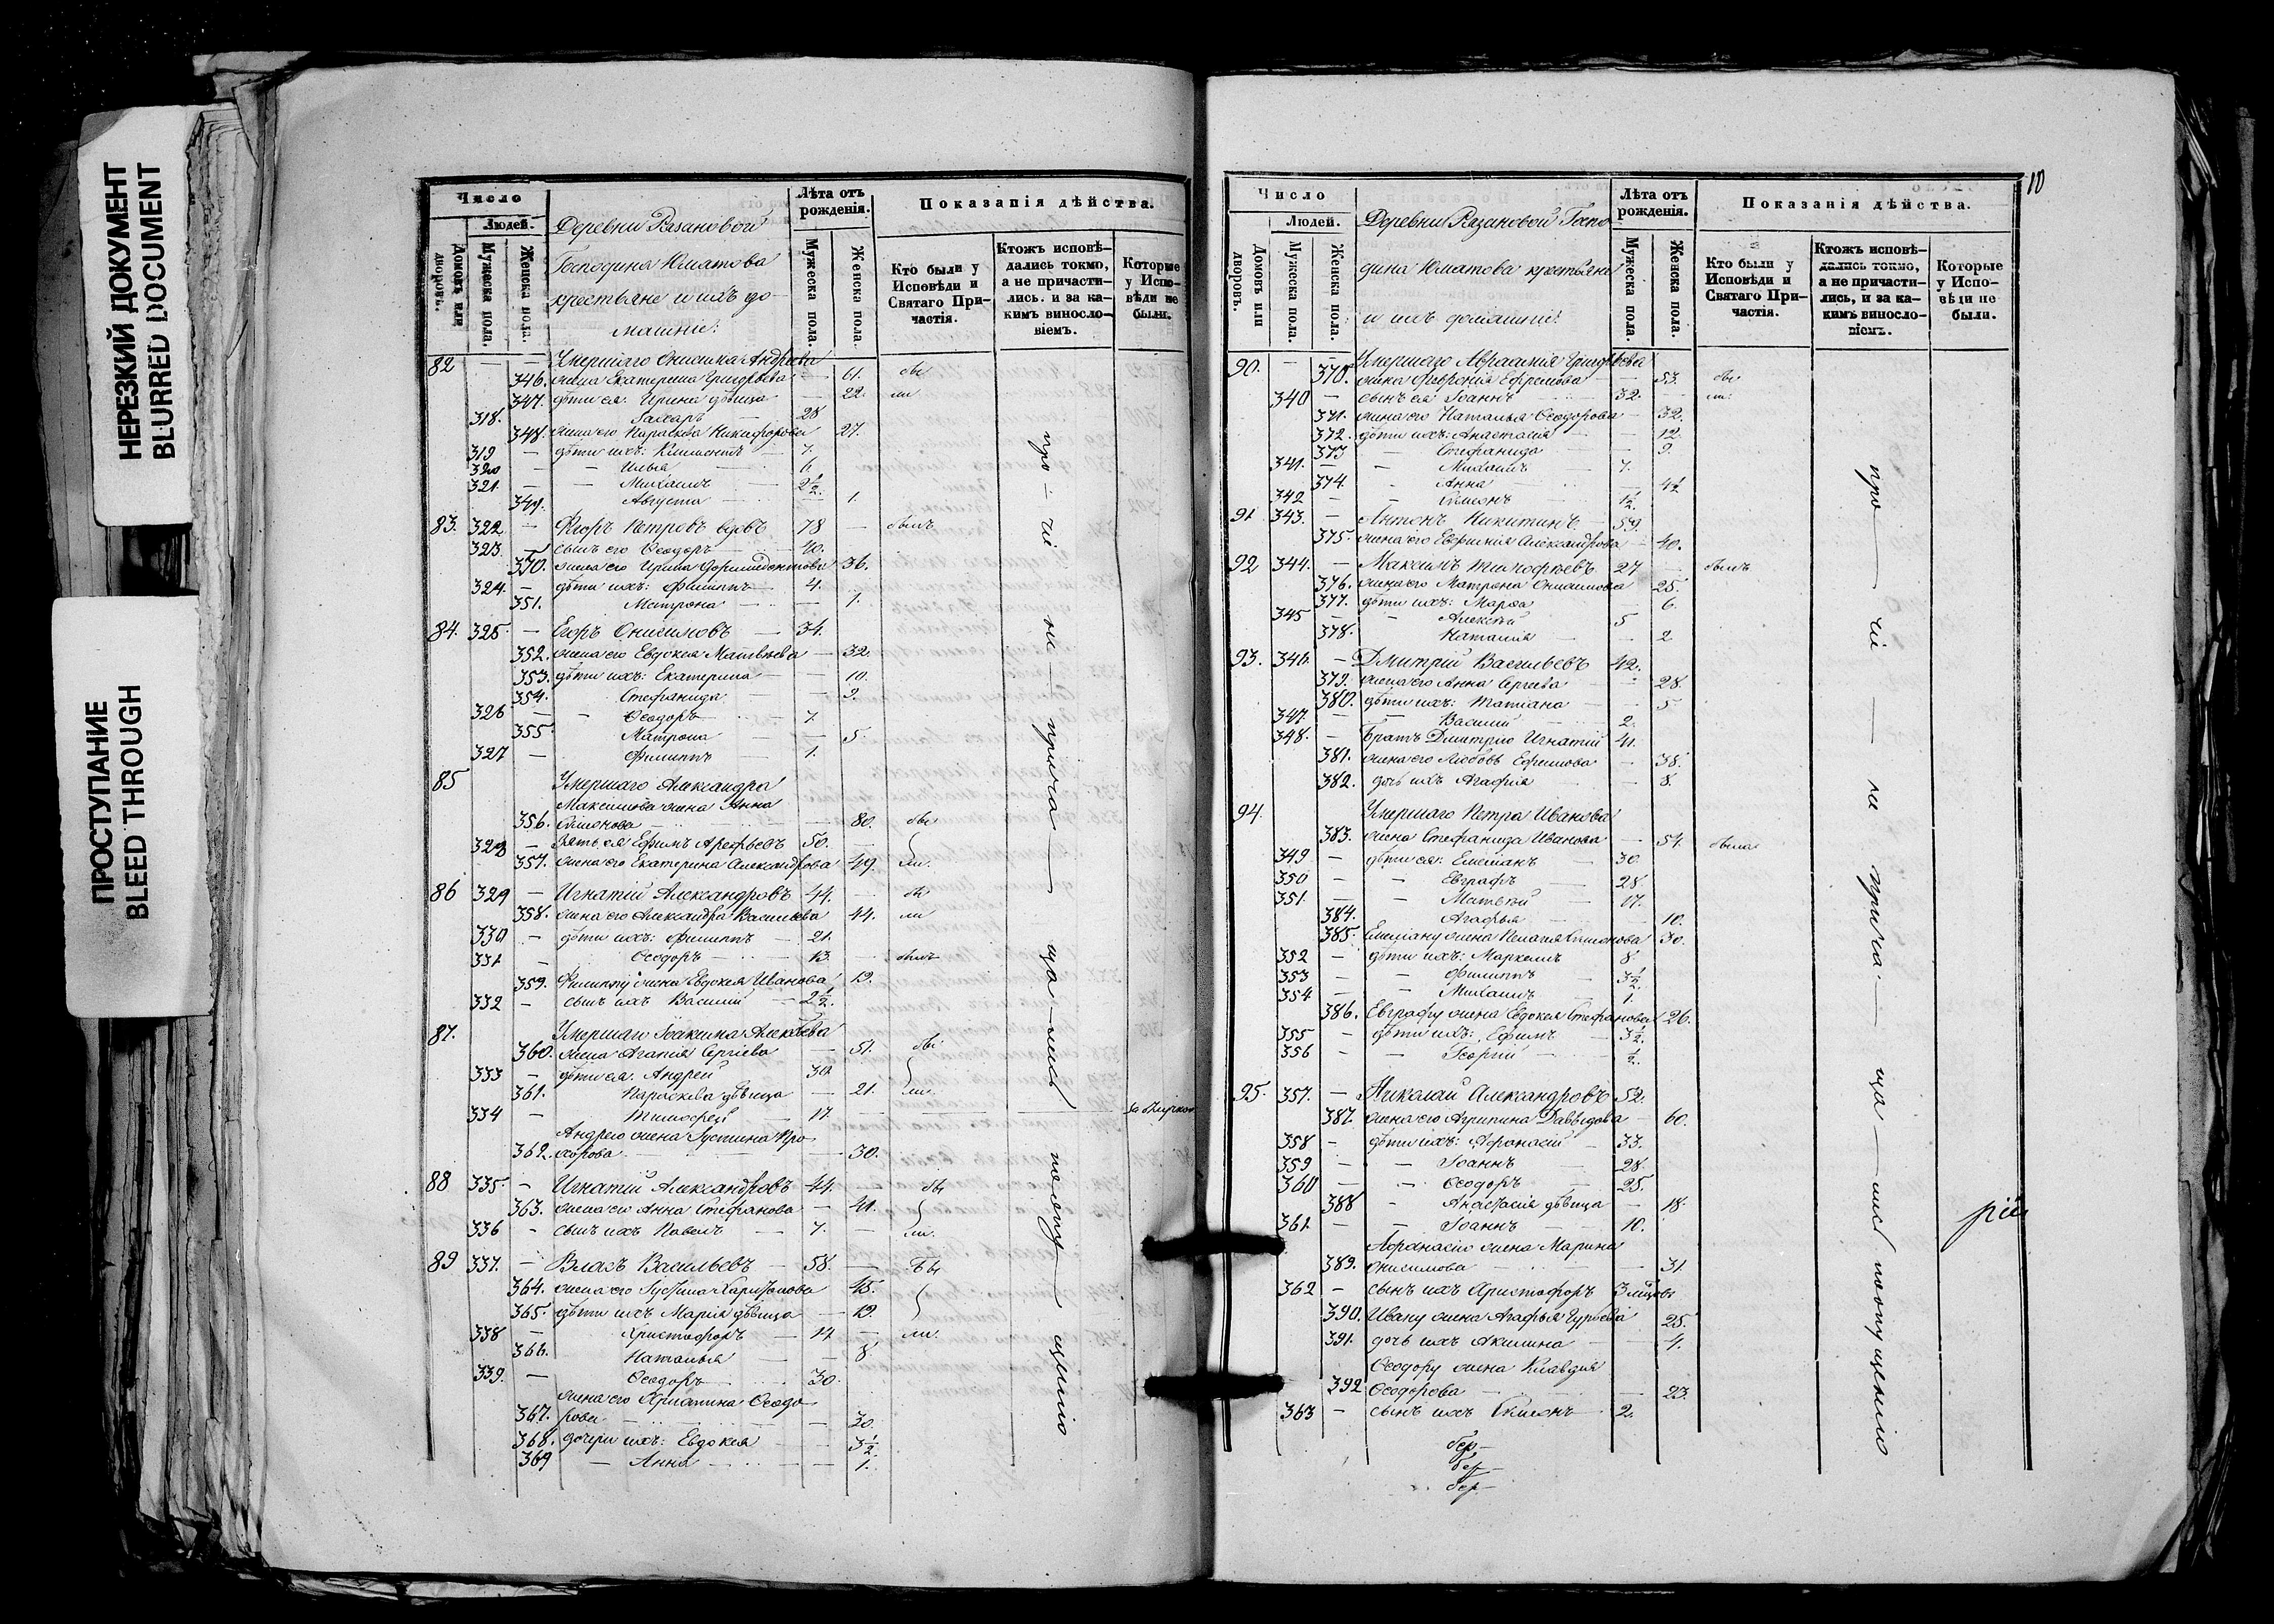 НЕРЕЗКИЙ ДОКУМЕНТ
BLURRED DOCUMENT
ПРОСТУПАНИЕ
BLEED THROUGH
Число
Людей.
Домовъ или дворовъ.
Мужеска пола.
Женска пола.
Деревни Разановой
Господина Юматова
крестьяне и ихъ до-
машніе:
Лѣта отъ рожденія.
Мужеска пола.
Женска пола.
Показанія дѣйства.
Кто были у Исповѣди и Святаго При-частія.
Ктожъ исповѣ-дались токмо, а не причасти-лись. и за ка-кимъ винosло-віемъ.
Которые у Испо-вѣди не были.
82 — Умершаго Онисима Андреева
346. жена Екатерина Григорьева — 61. бы
347. дѣти ея: Ирина дѣвица — 22. ли
318. Захаръ — 28
348. жена его Параскева Никифорова 27.
319 — дѣти ихъ: Климентъ — 7.
320 — Илья — 6.
321. — Михаилъ — 2½.
349. Августа — 1.
83. 322 — Флоръ Петровъ вдовъ 78 — былъ
323 — сынъ его Ѳеодоръ — 40.
350. жена его Ирина 36.
324. — дѣти ихъ: Филиппъ — 4.
351. Матрона — 1.
84. 325. — Егоръ Онисимовъ — 34.
352. жена его Евдокея Матвѣева — 32.
353. дѣти ихъ: Екатерина — 10.
354. Стефанида — 9.
326 — Ѳеодоръ — 7.
355. Матрона — 5.
327 — Филиппъ — 1.
85 Умершаго Александра
Максимова жена Анна
356. Симонова — 80. бы
328 — Зять ея Ефимъ Арефьевъ 50.
357. жена его Екатерина Александрова 49. ли.
86 329 — Игнатій Александровъ 44. — бы
358. жена его Александра Васильева 44. ли
330 — дѣти ихъ: Филиппъ — 21.
331 — Ѳеодоръ — 13. — былъ
359. Филиппу жена Евдокея Иванова 19.
332 — сынъ ихъ Василій — 2½.
87. Умершаго Іоакима Алексѣева
360. жена Агапія Сергіева — 51. бы
333 — дѣти ея: Андрей 30
361. Параскева дѣвица — 21. ли.
334 — Тимофей — 17. —
Андрею жена Іустина Про
362. хорова — 30.
88 335 — Игнатій Александровъ 44. бы
363. жена его Анна Стефанова — 41.
336 — сынъ ихъ Павелъ — 7. — ли.
89 337. — Власъ Васильевъ — 58. — бы
364. жена его Іустина Харитонова 45.
365. дѣти ихъ Марія дѣвица — 19.
338 — Христофоръ — 14 — ли.
366. Наталья — 8
339. — Ѳеодоръ — 30.
жена его Христина Ѳеодо
367. рова — 30.
368. дочери ихъ: Евдокея — 3½
369 — Анна — 1.
про — чіе не — прича — ща — лись по опу — щенію
10
Число
Людей.
Домовъ или дворовъ.
Мужеска пола.
Женска пола.
Деревни Разановой Госпо
дина Юматова крестьяне
и ихъ домашніе:
Лѣта отъ рожденія.
Мужеска пола.
Женска пола.
Показанія дѣйства.
Кто были у Исповѣди и Святаго При-частія.
Ктожъ исповѣ-дались токмо, а не причасти-лись, и за ка-кимъ винoсло-віемъ.
Которые у Испо-вѣди не были.
90. — Умершаго Авраамія Григорьева
370. жена Ефремова — 53. бы
340 — сынъ ея Іоаннъ 32. — ли.
371. жена его Наталья Ѳеодорова — 32.
372. дѣти ихъ: Анастасія — 12.
373 Стефанида — 9.
341. — Михаилъ — 7.
374. Анна — 4½
342 — Симеонъ — 1½.
91 343. — Антонъ Никитинъ — 59.
375. жена его Евфимія Александрова — 40.
92 344. — Максимъ Тимофѣевъ 27 — былъ
376. жена его Матрона Онисимова 25.
377. дѣти ихъ: Марѳа 6.
345 — Алексѣй 5
378. Наталія — 2
93. 346. — Дмитрій Васильевъ 42.
379. жена его Анна Сергіева — 28.
380. дѣти ихъ: Татіана — 5
347. — Василій — 2.
348. — Братъ Дмитрію Игнатій 41.
381. жена его Любовь Ефремова — 38.
382. дочь ихъ Агафія — 8.
94. Умершаго Петра Иванова
383. жена Стефанида Иванова — 54. была
349 — дѣти ея: Емеліанъ — 30
350 — Евграфъ — 28.
351. — Матвѣй — 17.
384. Агафья — 10.
385. Емеліану жена Пелагія Симонова 30.
352 — дѣти ихъ: Маркелъ 8
353 — Филиппъ 3½.
354 — Михаилъ — 1.
386. Евграфу жена Евдокея Стефанова 26.
355 — дѣти ихъ: Ефимъ — 3½.
356 — Георгій — ½.
95. 357. — Николай Александровъ 52.
387. жена его Агрипина Давыдова — 60.
358 — дѣти ихъ: Афанасій — 33.
359 — Іоаннъ — 28.
360 — Ѳеодоръ — 25.
388 Анастасія дѣвица — 18.
361. — Іоаннъ — 10.
Афанасію жена Марина
389. Онисимова — 31.
362 — сынъ ихъ Христофоръ 3
390. Ивану жена Агафья 25.
391. дочь ихъ Акилина — 4.
Ѳеодору жена Клавдія
392 Ѳеодорова — 23.
363 — сынъ ихъ Симеонъ — 2.
про — чіе — не прича — ща — лись по опущенію
рій